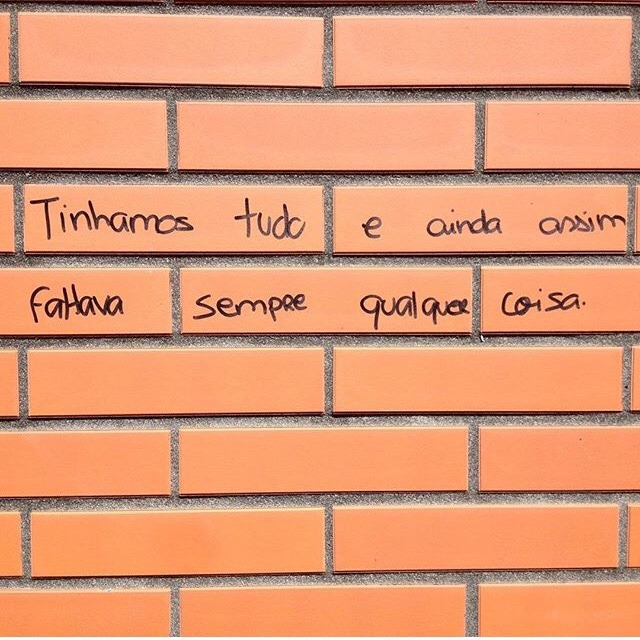 Tinhamos tudo e ainda assim
faltava sempre qualquer coisa.